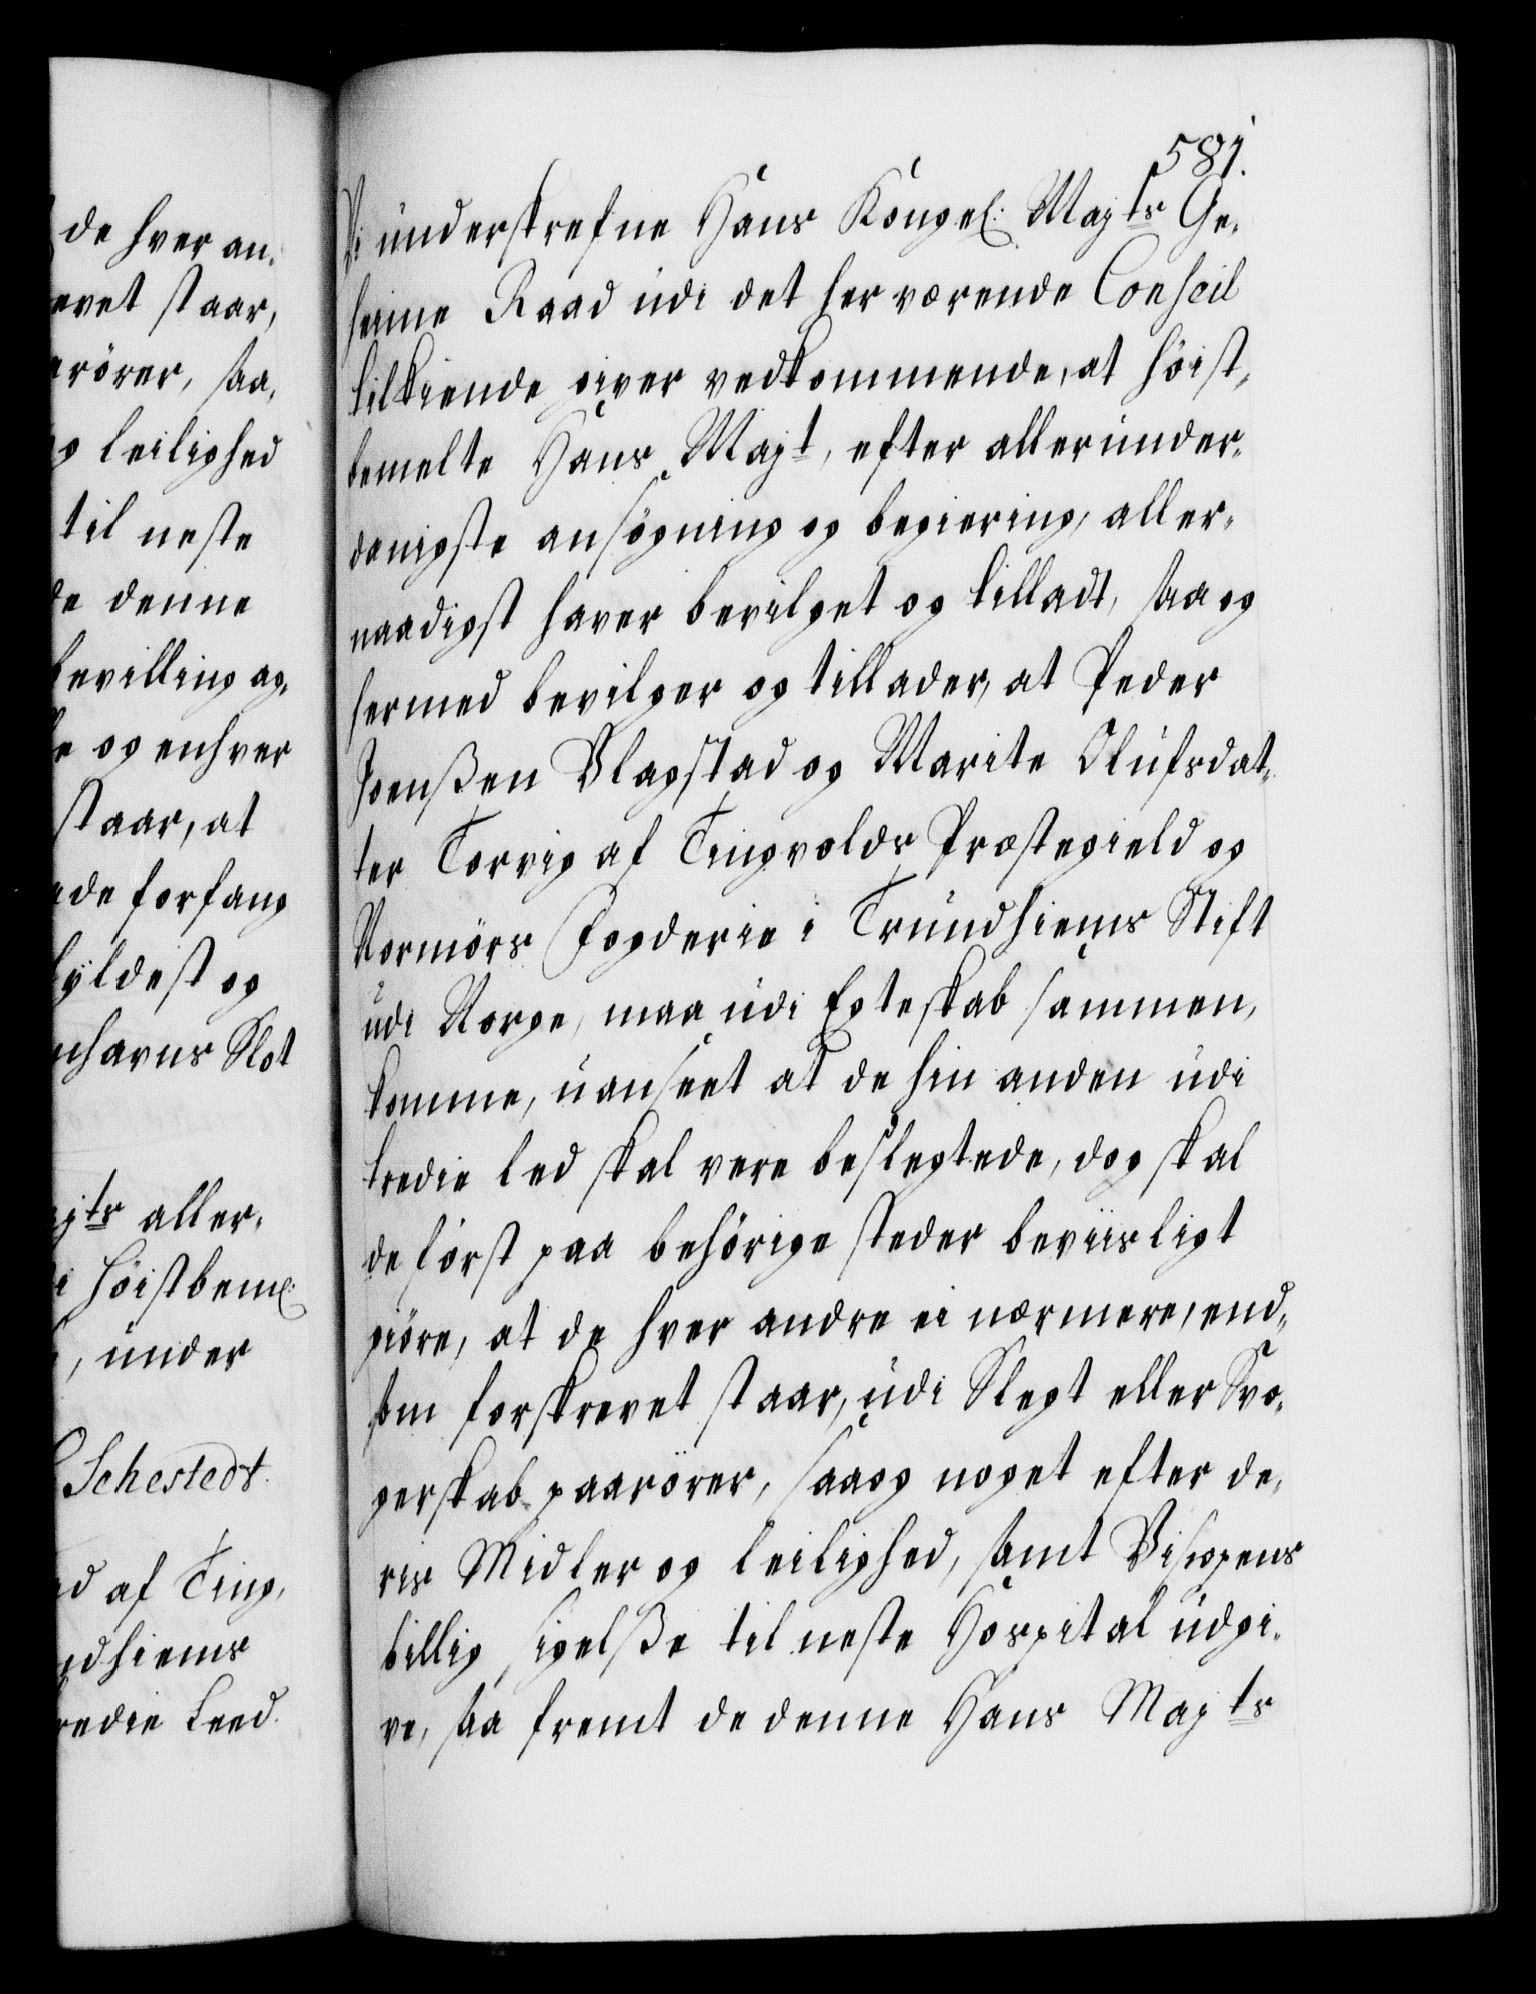 de hver an,
evet staar,
rörer, saa,
leilighed
til neste
denne
bevilling ag,
og enhver
staar, at
forfang
hyldest og
nhavns Slot
aller,
Höistbeml:
, under
Schestedt.
af Ting,
ndhiems
redie Leed.
581.
Vi underskrefne Hans Kongel: Majts Ge,
heime Raad udi det her værende Conseil
tilkiende giver vedkommende, at höist,
bemelte Hans Majt, efter allerunder,
danigste ansögning og begiering, aller,
naadigst haver bevilget og tilladt, saa og
hermed bevilger og tillader, at Peder
Joenßen Blagstad og Marite Olufsdat,
ter Torvig af Tingvolds Præstegield og
Normörs Fogderie i Trundhiems Stift
udi Norge, maa udi Egteskab sammen,
komme, uanseet at de hin anden udi
tredie led skal vere beslegtede, dog skal
de först paa behörige steder beviisligt
giöre, at de hver andre ei nærmere, end,
som forskrevet staar, udi Slegt eller Svo,
gerskab paarörer, saa og noget efter de,
ris Midler og leilighed, samt Biscopens
billig sigelße til neste Hospital udgi,
ve, saa fremt de denne Hans Majts